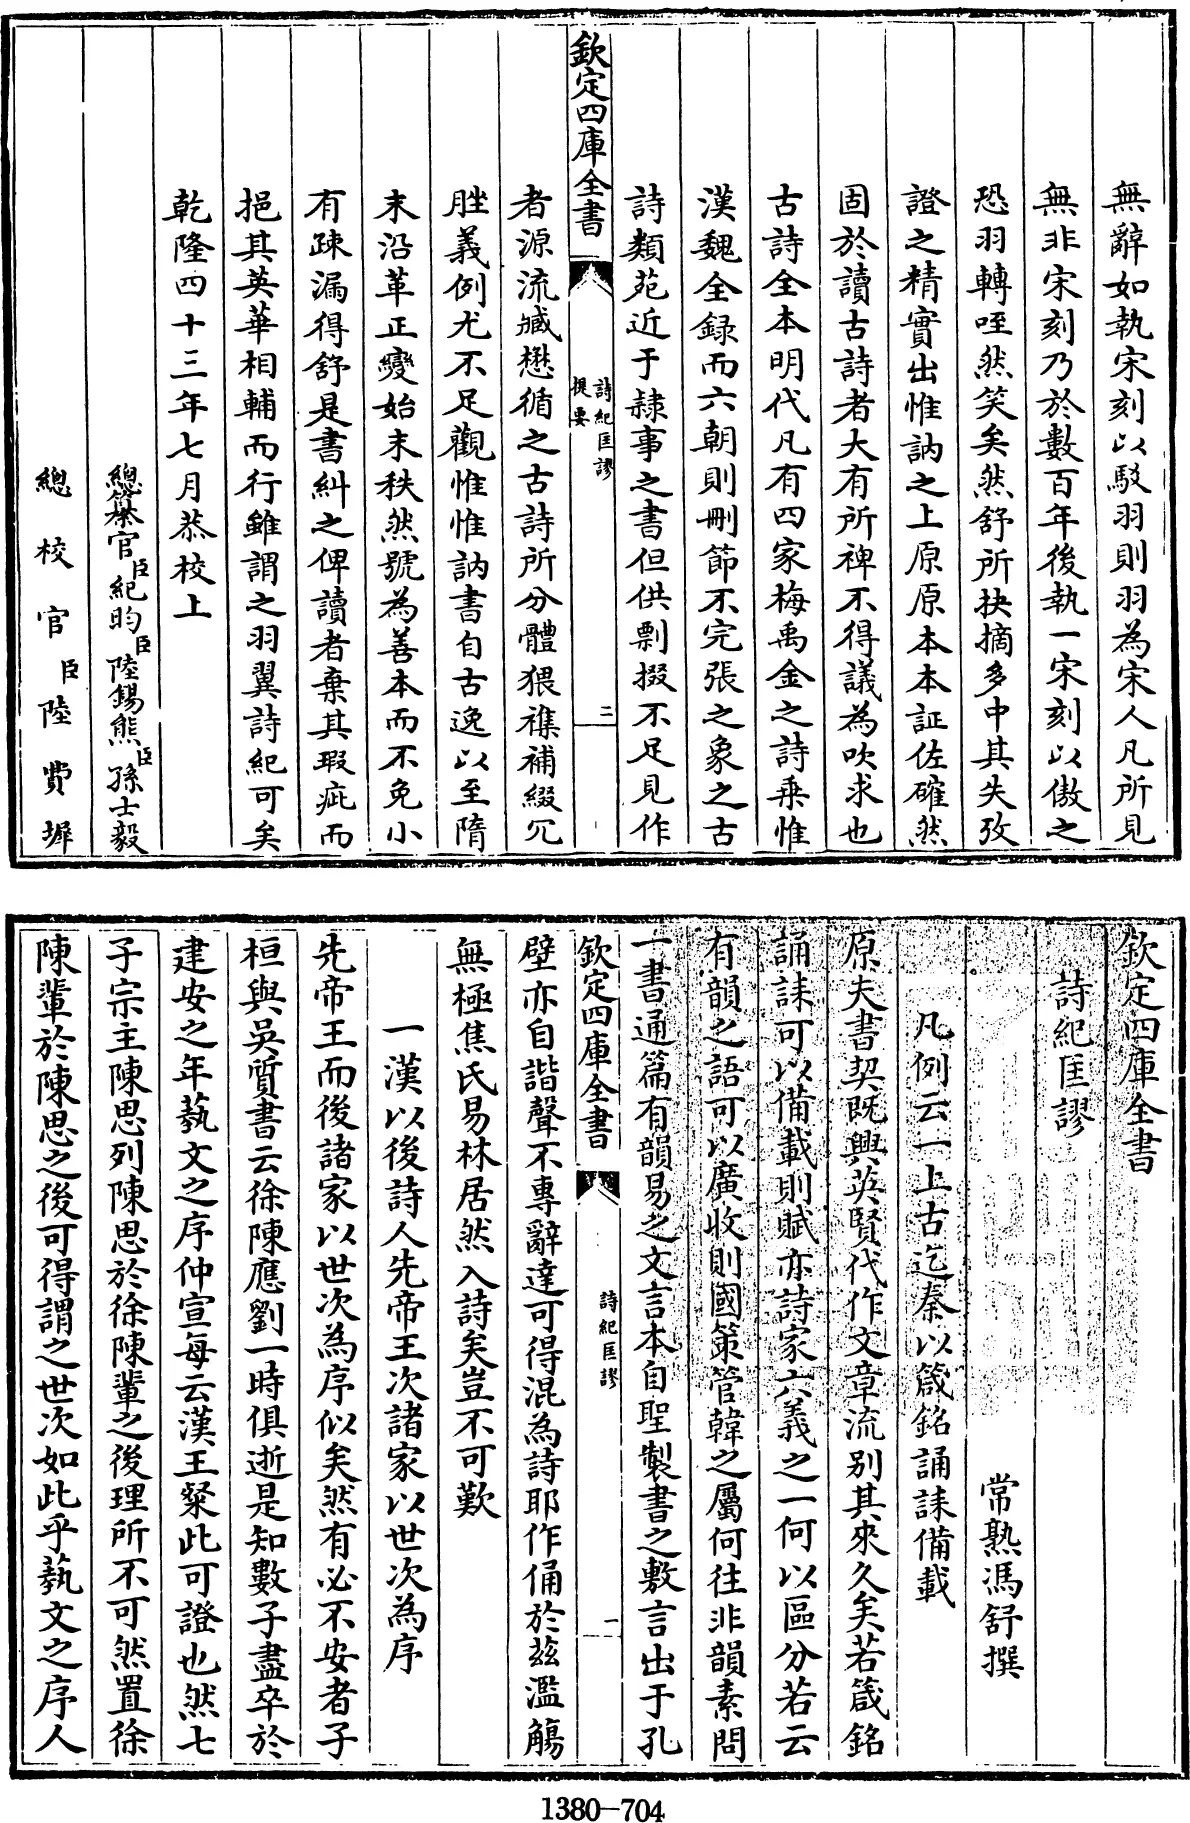 無辭如執宋刻以駁羽則羽為宋人凡所見
無非宋刻乃於數百年後執一宋刻以傲之
恐羽轉咥然笑矣然舒所抉摘多中其失攷
證之精實出惟訥之上原原本本証佐確然
固於讀古詩者大有所裨不得議為吹求也
古詩全本明代凡有四家梅禹金之詩乘惟
漢魏全録而六朝則刪節不完張之象之古
詩類苑近于隷事之書但供剽掇不足見作
欽定四庫全書
詩紀匡謬
提要
二
者源流臧懋循之古詩所分體猥襍補綴冗
脞義例尤不足觀惟惟訥書自古逸以至隋
末沿革正變始末秩然號為善本而不免小
有疎漏得舒是書糾之俾讀者棄其瑕疵而
挹其英華相輔而行雖謂之羽翼詩紀可矣
乾隆四十三年七月恭校上
總纂官臣紀昀臣陸錫熊臣孫士毅
總校官臣陸費墀
欽定四庫全書
詩紀匡謬
常熟馮舒撰
凡例云一上古迄秦以箴銘誦誄備載
原夫書契既興英賢代作文章流別其來久矣若箴銘
誦誄可以備載則賦亦詩家六義之一何以區分若云
有韻之語可以廣收則國策管韓之屬何往非韻素問
一書通篇有韻易之文言本自聖製書之敷言出于孔
欽定四庫全書
詩紀匡謬
一
壁亦自諧聲不專辭達可得混為詩耶作俑於兹濫觴
無極焦氏易林居然入詩矣豈不可歎
一漢以後詩人先帝王次諸家以世次為序
先帝王而後諸家以世次為序似矣然有必不安者子
桓與吳質書云徐陳應劉一時俱逝是知數子盡卒於
建安之年蓺文之序仲宣每云漢王粲此可證也然七
子宗主陳思列陳思於徐陳輩之後理所不可然置徐
陳輩於陳思之後可得謂之世次如此乎蓺文之序人
1380—704